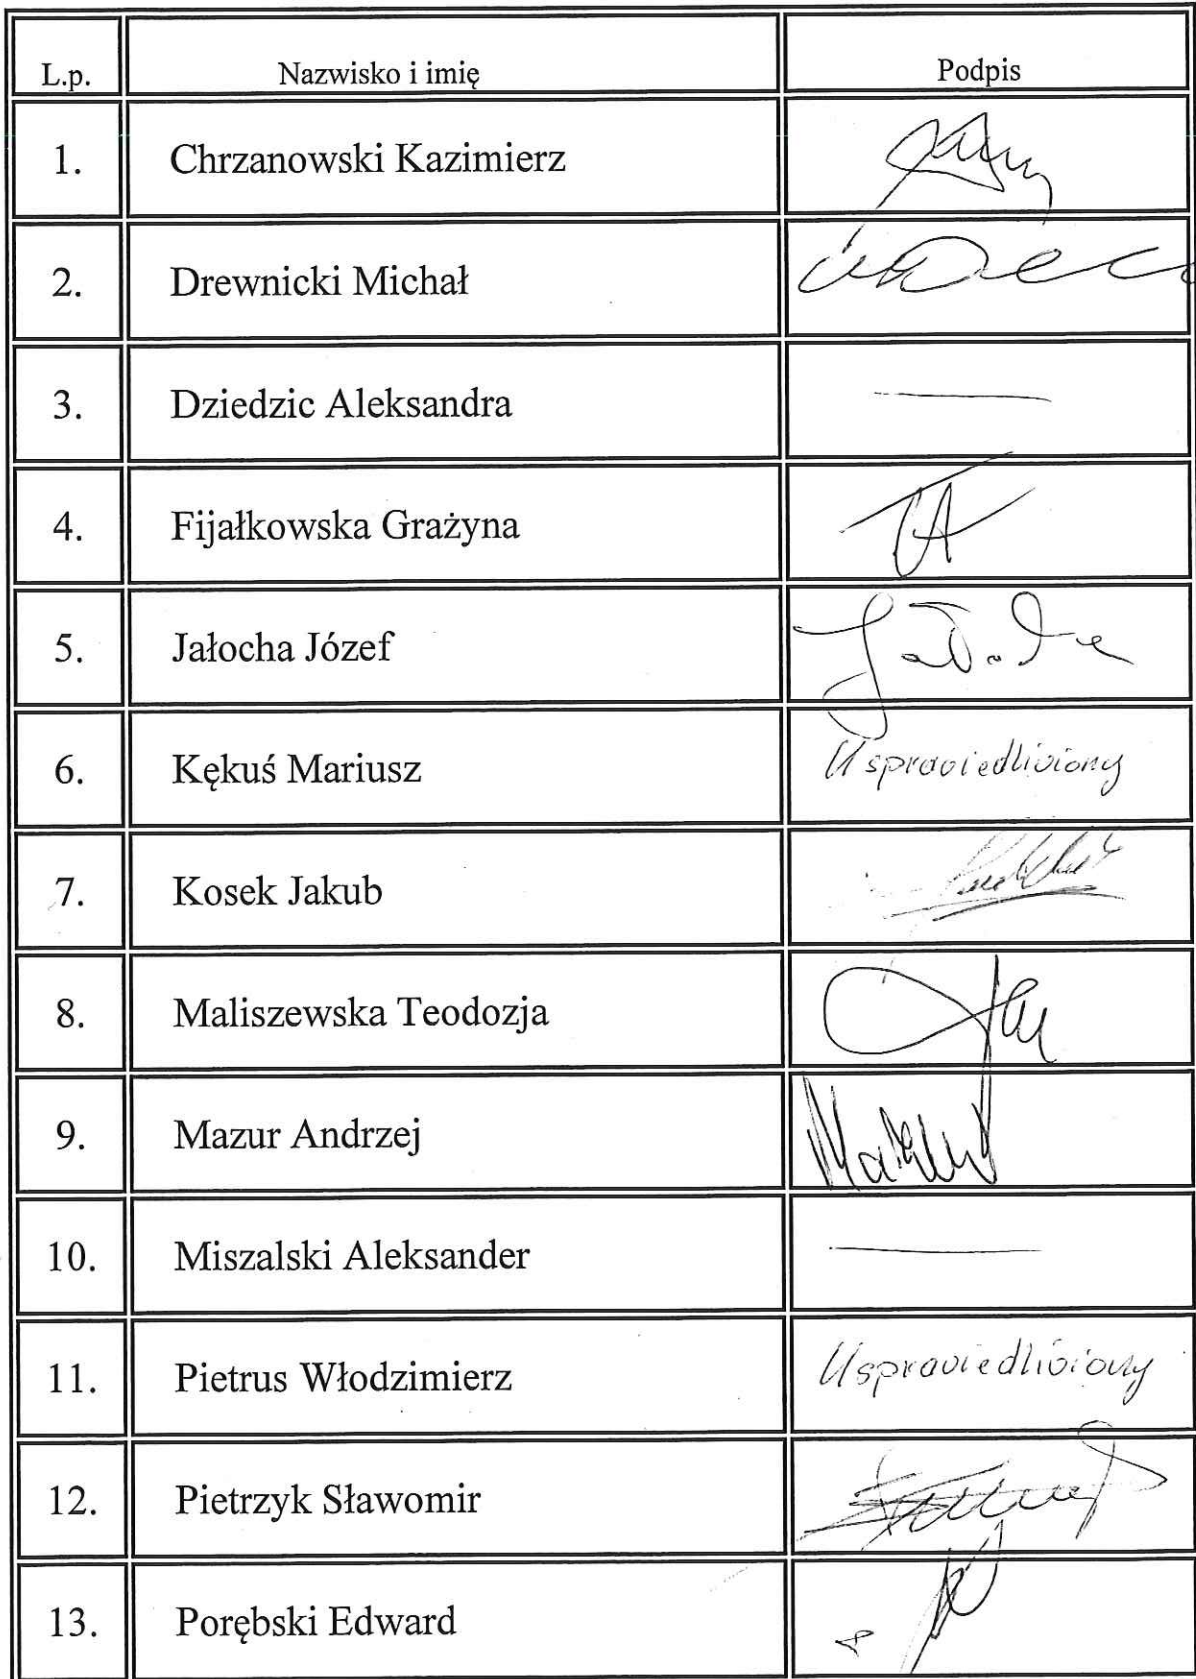 L.p. Nazwisko i imię Podpis
1. Chrzanowski Kazimierz
2. Drewnicki Michał
3. Dziedzic Aleksandra —
4. Fijałkowska Grażyna
5. Jałocha Józef
6. Kękuś Mariusz Usprawiedliwiony
7. Kosek Jakub
8. Maliszewska Teodozja
9. Mazur Andrzej Mazur
10. Miszalski Aleksander —
11. Pietrus Włodzimierz Usprawiedliwiony
12. Pietrzyk Sławomir
13. Porębski Edward